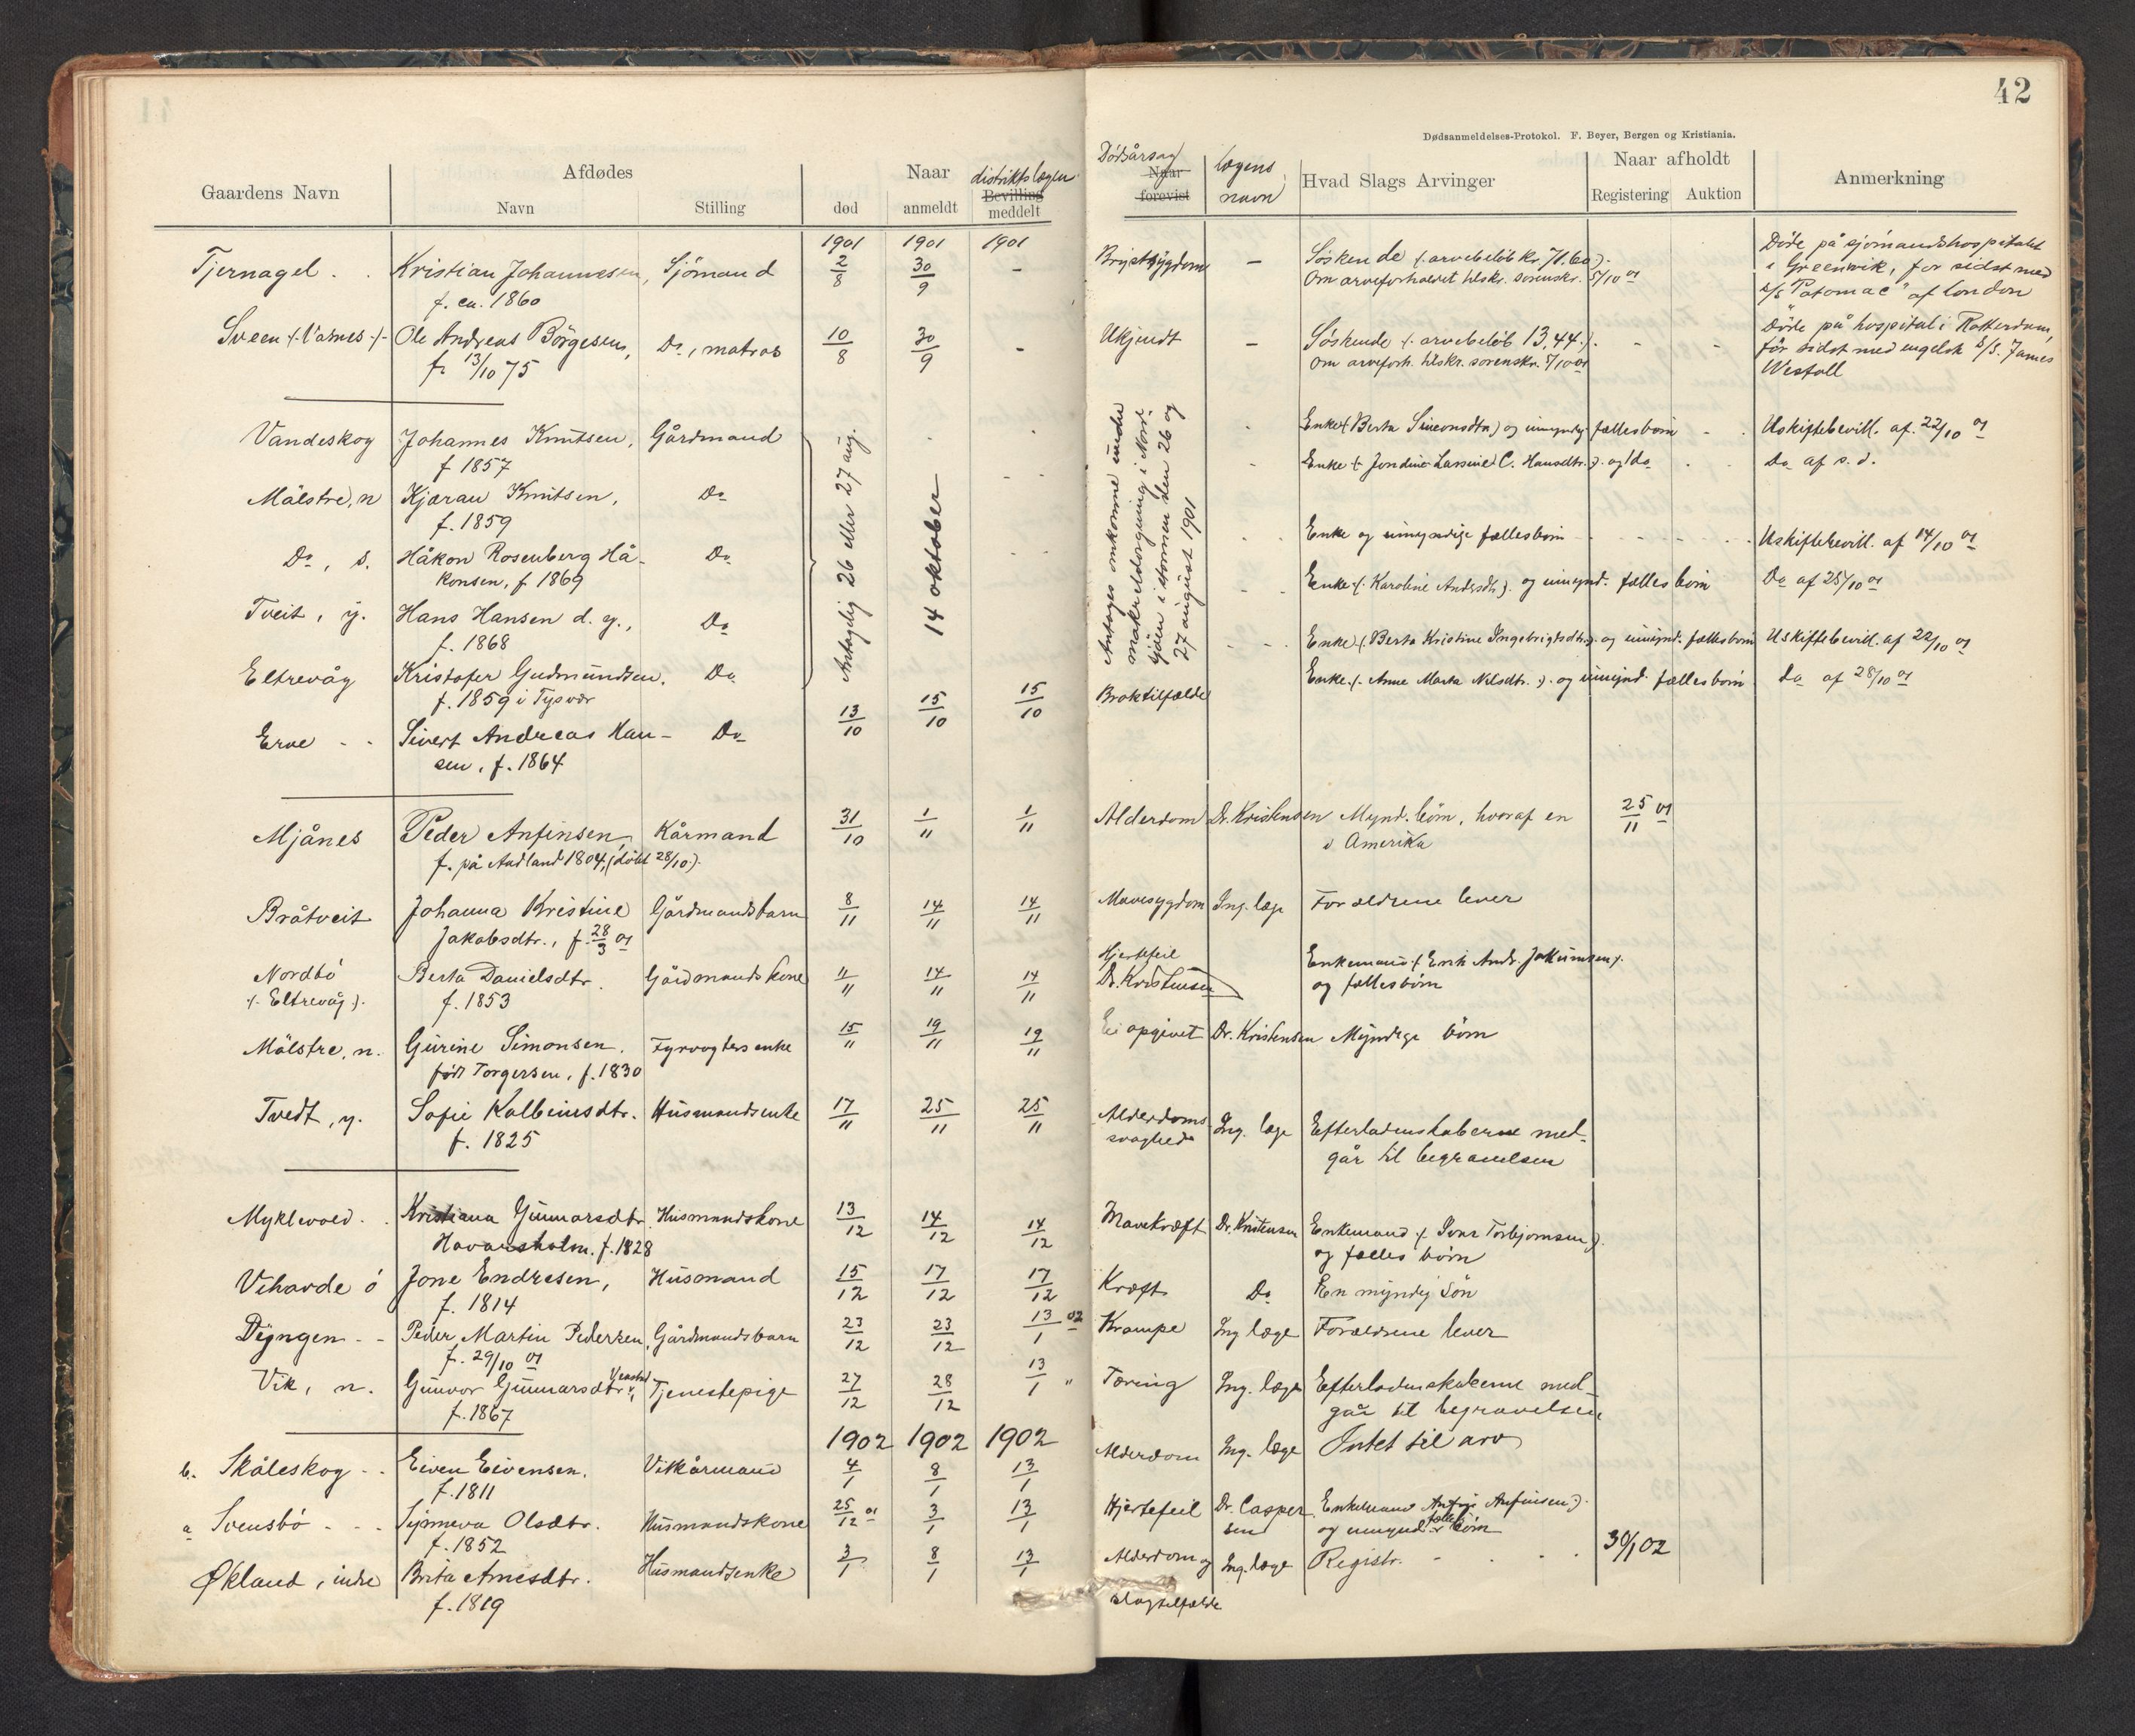 42
Dødsanmeldelses-Protokol. F. Beyer, Bergen og Kristiania.
Gaardens Navn
Afdødes
Navn
Stilling
Naar
død
anmeldt
distriktslægen
Bevilling
meddelt
Dødsårsag
Naar
forevist
lægens
navn
Hvad Slags Arvinger
Naar afholdt
Registering
Auktion
Anmerkning
1901 1901 1901
Tjernagel . . Kristian Johannesen, Sjømand 2/8 30/9 - Brystsygdom - Søskende (: arvebeløb kr. 71.60 :). Døde på sjømandshospitalet
f. ca. 1860 Om arveforholdet tilskr. sorenskr. 5/10 01 i Greenwik, for sidst med
s/s "Potomac" af London
Sveen (: Valnes :) Ole Andreas Børgesen, Do, matros 10/8 30/9 - Ukjendt - Søskende (: arvebeløb 13,44 :). - - Døde på hospital i Rotterdam,
f. 13/10 75 Om arveforh. tilskr. sorenskr. 5/10 01 før sidst med engelsk s/s. James
Westoll
Antagelig 26 eller 27 aug.
14 oktober
Antages omkomne under
makreldorgning i Nord-
sjøen i stormen den 26 og
27 august 1901
Vandeskog Johannes Knutsen, Gårdmand Enke (: Berta Simonsdtr.) og umyndig. fællesbørn - - Uskiftebevill. af. 22/10 01
f 1857 Enke (: Jondine Lassine C. Hansdtr. :). og Do . . Do af s. d.
Mølstre, n Kjæran Knutsen, Do
f. 1859 Enke og umyndige fællesbørn - - - - Uskiftebevill. af 14/10 01
Do, s. Håkon Rosenberg Hå- Do
konsen, f 1869 Enke (: Karoline Andersdtr. :). og umynd. fællesbørn Do af 25/10 01
Tveit, y. Hans Hansen d. y., Do
f. 1868 Enke (: Berta Kristine Ingebrigtsdtr. :) og umynd. fællesbørn Uskiftebevill. af 22/10 01
Eltrevåg Kristofer Gudmundsen. Do Enke (: Anne Marta Nilsdtr. :). og umynd. fællesbørn Do af 28/10 01
f. 1859 i Tysvær
Erve - - Sivert Andreas Han- Do 13/10 15/10 15/10 Broktilfælde
sen, f. 1864
Mjånes Peder Anfinsen, Kårmand 31/10 1/11 1/11 Alderdom Dr. Kristensen Mynd. børn, hvoraf en 25/11 01
f. på Audland 1804, (døbt 28/10). i Amerika
Bråtveit Johanna Kristine Gårdmandsbarn 8/11 14/11 14/11 Mavesygdom Ing. læge Forældrene lever
Jakobsdtr., f. 28/3 01
Nordbø Berta Danielsdtr. Gårdmandskone 11/11 14/11 14/11 Hjertefeil Enkemand (: Erik Andr. Jakumsen :).
(: Eltrevåg :). f. 1853 Dr. Kristensen og fællesbørn
Mølstre, n. Gurine Simonsen. Fyrvogtersenke 15/11 19/11 19/11 Ei opgivet Dr. Kristensen Myndige børn
født Torgersen, f. 1830
Tvedt, y. Sofie Kolbeinsdtr. Husmandsenke 17/11 25/11 25/11 Alderdoms- Ing. læge Efterladenskaberne med-
f. 1825 svaghed går til begravelsen
Myklevold . . Kristiana Gunnarsdtr. Husmandskone 13/12 14/12 14/12 Mavekræft Dr. Kristensen Enkemand (: Ivar Torbjornsen :).
Havarsholm. f. 1828 og fælles børn
Vihovde ø Jone Endresen, Husmand 15/12 17/12 17/12 Kræft Do En myndig søn
f. 1814
Dyngen - - Peder Martin Pedersen, Gårdmandsbarn 23/12 23/12 13/1 02 Krampe Ing læge Forældrene lever
f. 29/10 01
Vik, n. Gunvor Gunnarsdtr., Tjenestepige 27/12 28/12 13/1 " Tæring Ing. læge Efterladenskaberne med-
f. 1867 går til begravelsen
1902 1902 1902
b. Skåleskog - . Eiven Eivensen. Vilkårmand 4/1 8/1 13/1 Alderdom Ing. læge Intet til arv
f. 1811
a Svensbø - . . Synneva Olsdtr. Husmandskone 25/12 01 3/1 13/1 Hjertefeil Dr. Casper Enkemand Anfin Anfinsen :).
f. 1852 sen og umynd. fælles børn
Økland, indre Brita Arnesdtr. Husmandsenke 3/1 8/1 13/1 Alderdom og Ing. læge Registr. - . . . 30/1 02
f. 1819 slagtilfælde